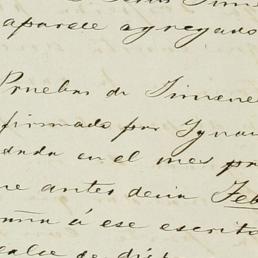 aparece agregado
Pruebas de Jimene
firmado por Ygna
dada en el mes pr
ue antes decia Feb
á ese escrito